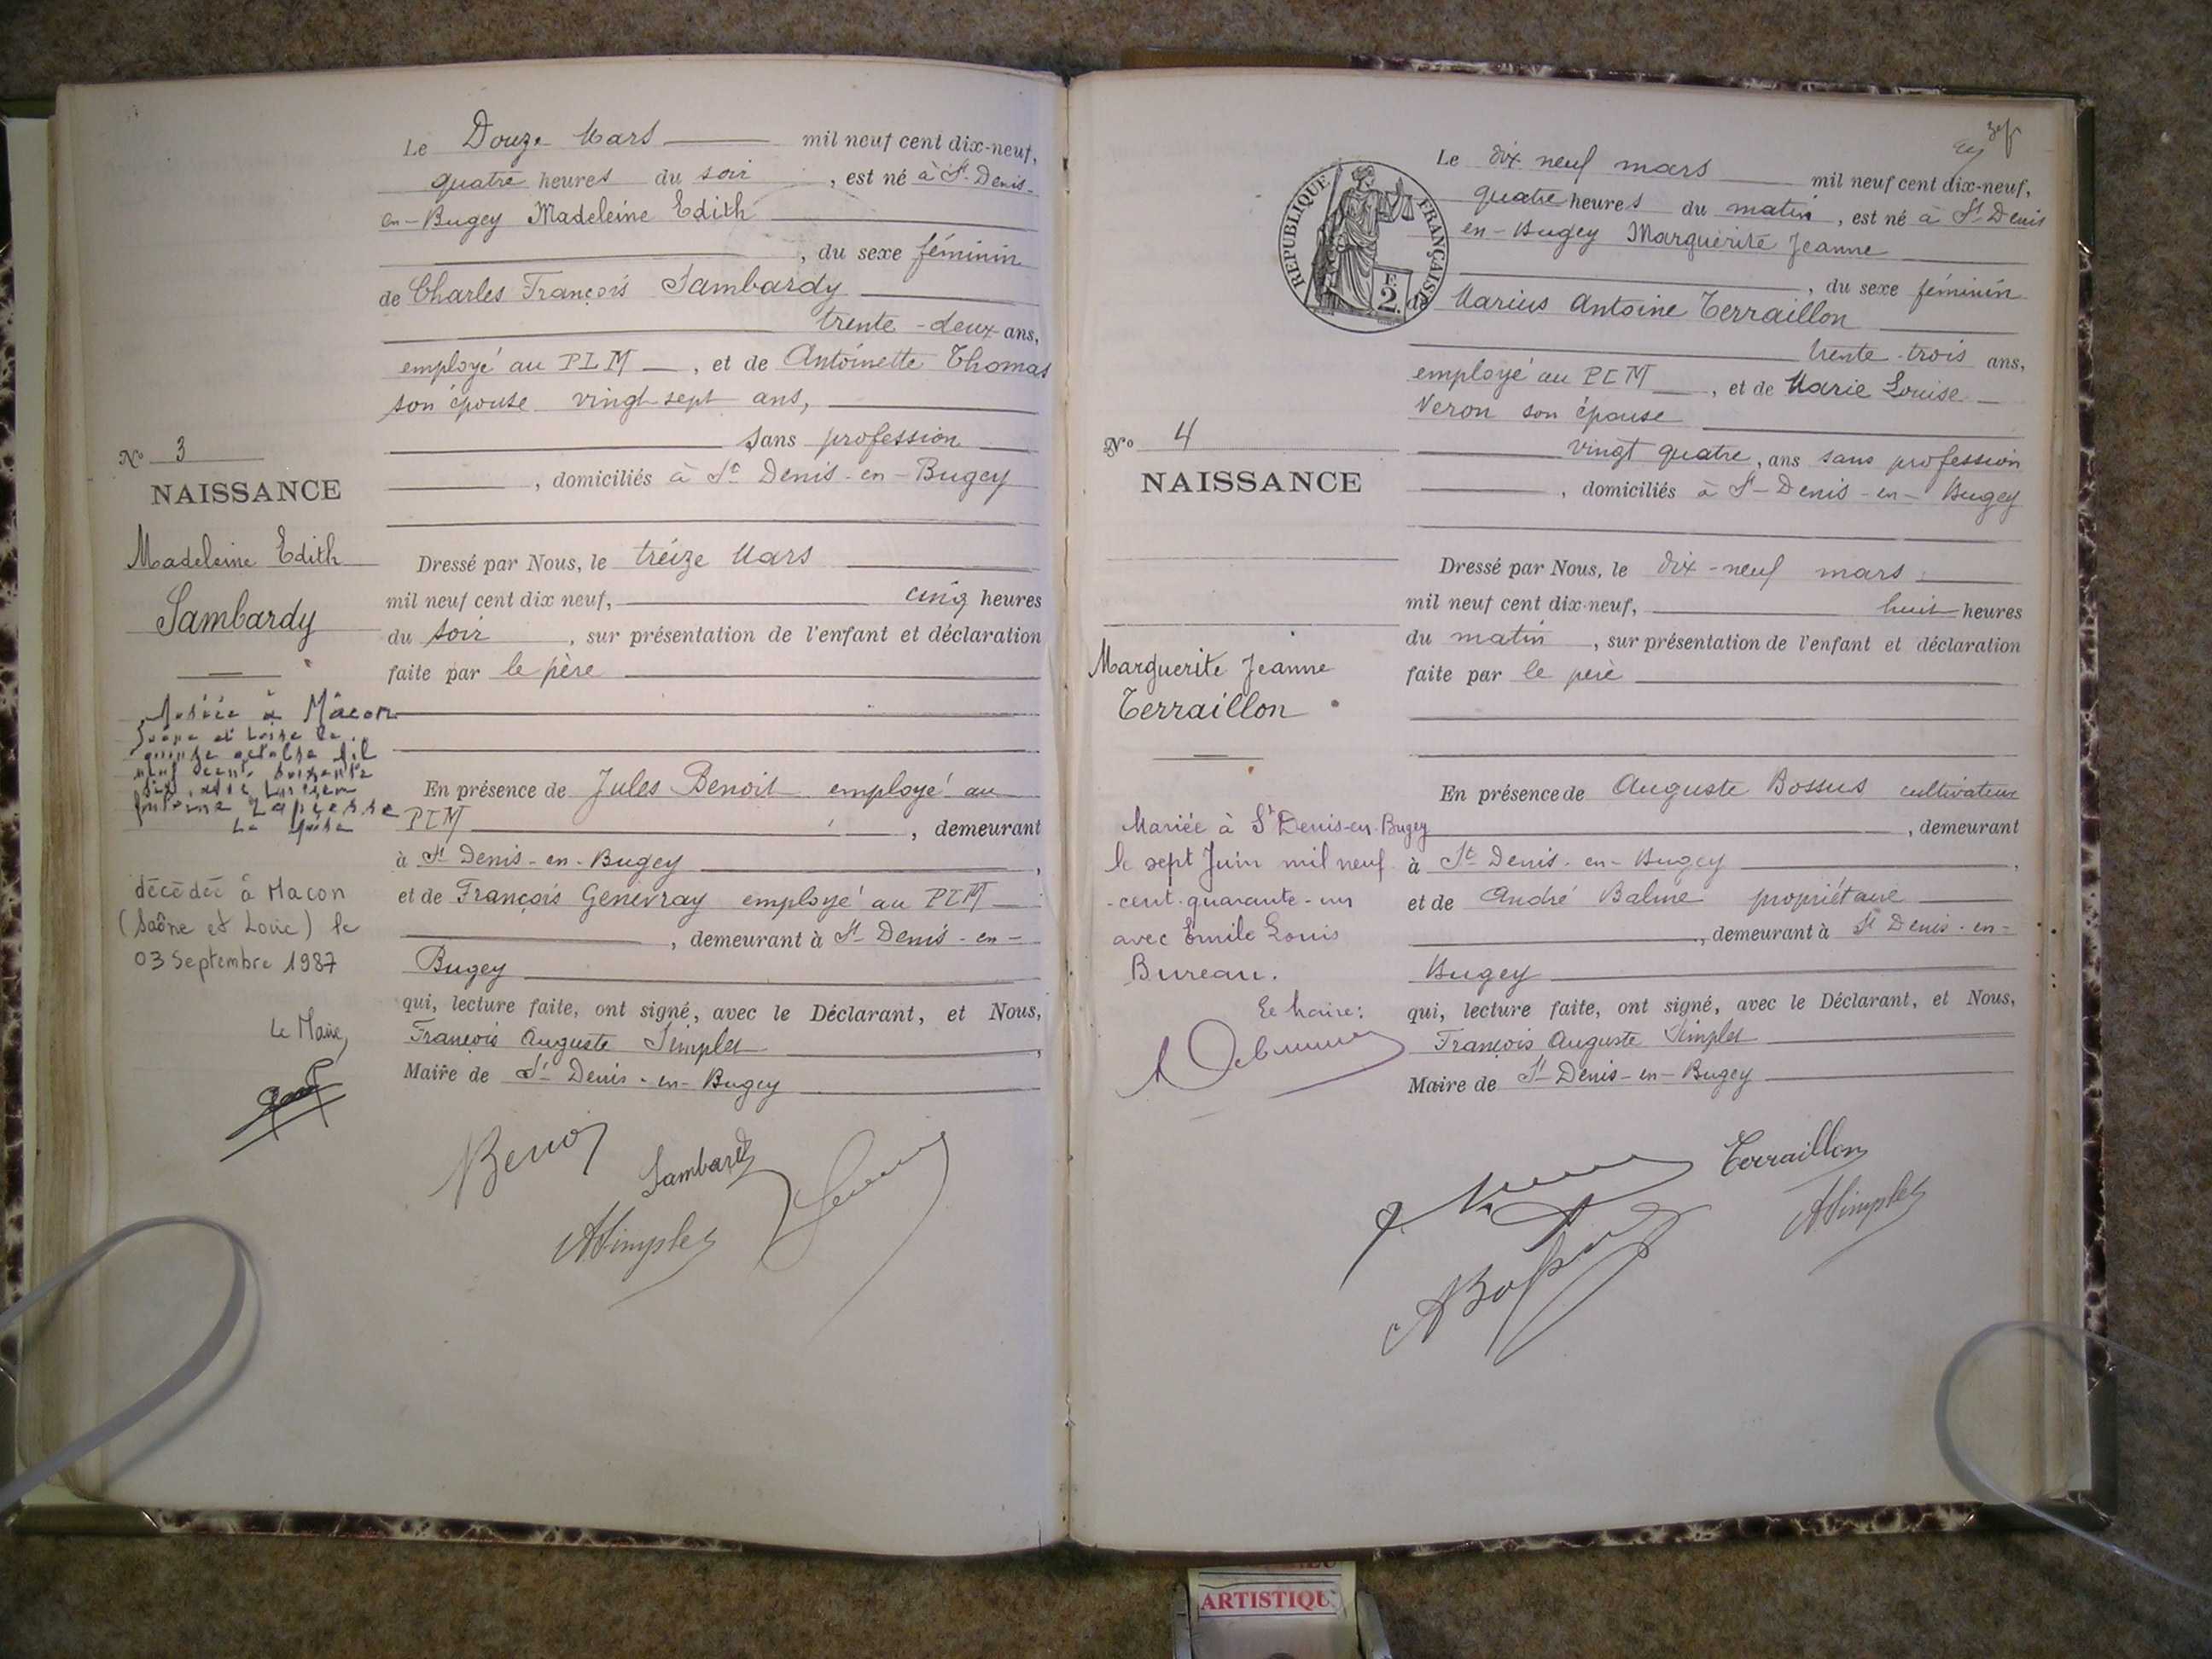 Le Douze Mars mil neuf cent dix-neuf,
quatre heures du soir , est né à St Denis-
en-Bugey Madeleine Edith
, du sexe féminin
de Charles François Sambardy
trente-deux ans,
employé au PLM , et de Antoinette Thomas
son épouse vingt-sept ans,
sans profession
, domiciliés à St Denis-en-Bugey
No 3
NAISSANCE
Madeleine Edith
Sambardy
Mariée à Mâcon
Saône et Loire le
quinze octobre mil
neuf cent soixante
Le Maire
décédée à Macon
(Saône et Loire) le
03 Septembre 1987
Le Maire,
Dressé par Nous, le treize Mars
mil neuf cent dix neuf, cinq heures
du soir , sur présentation de l'enfant et déclaration
faite par le père
En présence de Jules Benoit employé au
PLM , demeurant
à St Denis-en-Bugey ,
et de François Genevray employé au PLM
, demeurant à St Denis-en-
Bugey
qui, lecture faite, ont signé, avec le Déclarant, et Nous,
François Auguste Simplet ,
Maire de St Denis-en-Bugey
Benoit
Sambardy
ASimplet
Le dix neuf mars mil neuf cent dix-neuf,
quatre heures du matin , est né à St Denis
en-Bugey Marguerite Jeanne
, du sexe féminin
de Marius Antoine Terraillon
trente-trois ans,
employé au PLM , et de Marie Louise
Veron son épouse
vingt quatre, ans sans profession
, domiciliés à St-Denis-en-Bugey
RÉPUBLIQUE FRANÇAISE
F.
2.
No 4
NAISSANCE
Marguerite Jeanne
Terraillon
Mariée à St Denis-en-Bugey
le sept Juin mil neuf
-cent-quarante-un
avec Emile Louis
Bureau.
Le Maire:
Dressé par Nous, le dix-neuf mars
mil neuf cent dix-neuf, huit heures
du matin , sur présentation de l'enfant et déclaration
faite par le père
En présence de Auguste Bossus cultivateur
, demeurant
à St Denis-en-Bugey ,
et de André Balme propriétaire
, demeurant à St Denis-en-
Bugey
qui, lecture faite, ont signé, avec le Déclarant, et Nous,
François Auguste Simplet
Maire de St-Denis-en-Bugey
Terraillon
ASimplet
ABossus
ARTISTIQU